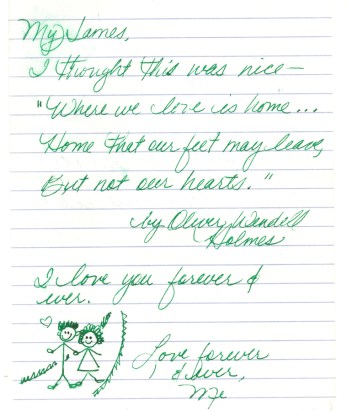 My James,
I thought this was nice—
"Where we love is home...
Home that our feet may leave,
But not our hearts."
by Oliver Wendell
Holmes
I love you forever &
ever.
Love forever
& ever,
Me